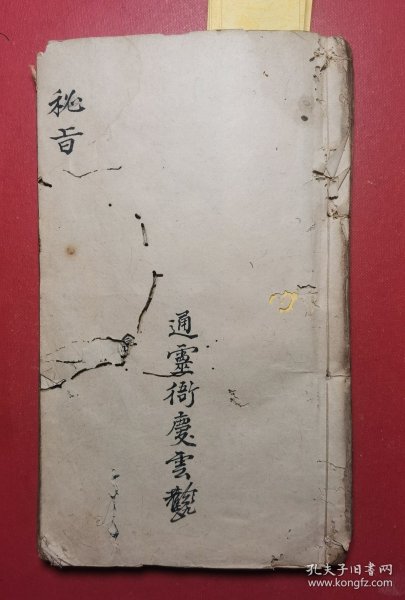 秘旨
通靈衙慶雲觀
孔夫子旧书网
www.kongfz.com